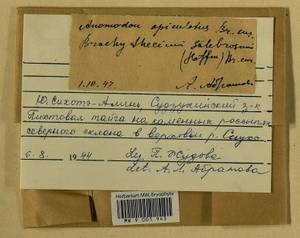 Anomodon apiculatus Br. eur.
Brachythecium salebrosum
(Hoffm.) Br. eur.
1.10.47. А. Абрамова
Ю. Сихотэ-Алинь Судзухинский з-к
Пихтовая тайга на каменных россыпях
северного склона в верховьи р.
6.8. 1944 Leg. П. Жудова
Det. А. Л. Абрамова
Herbarium MW, Bryophyta
MW 9 001 943